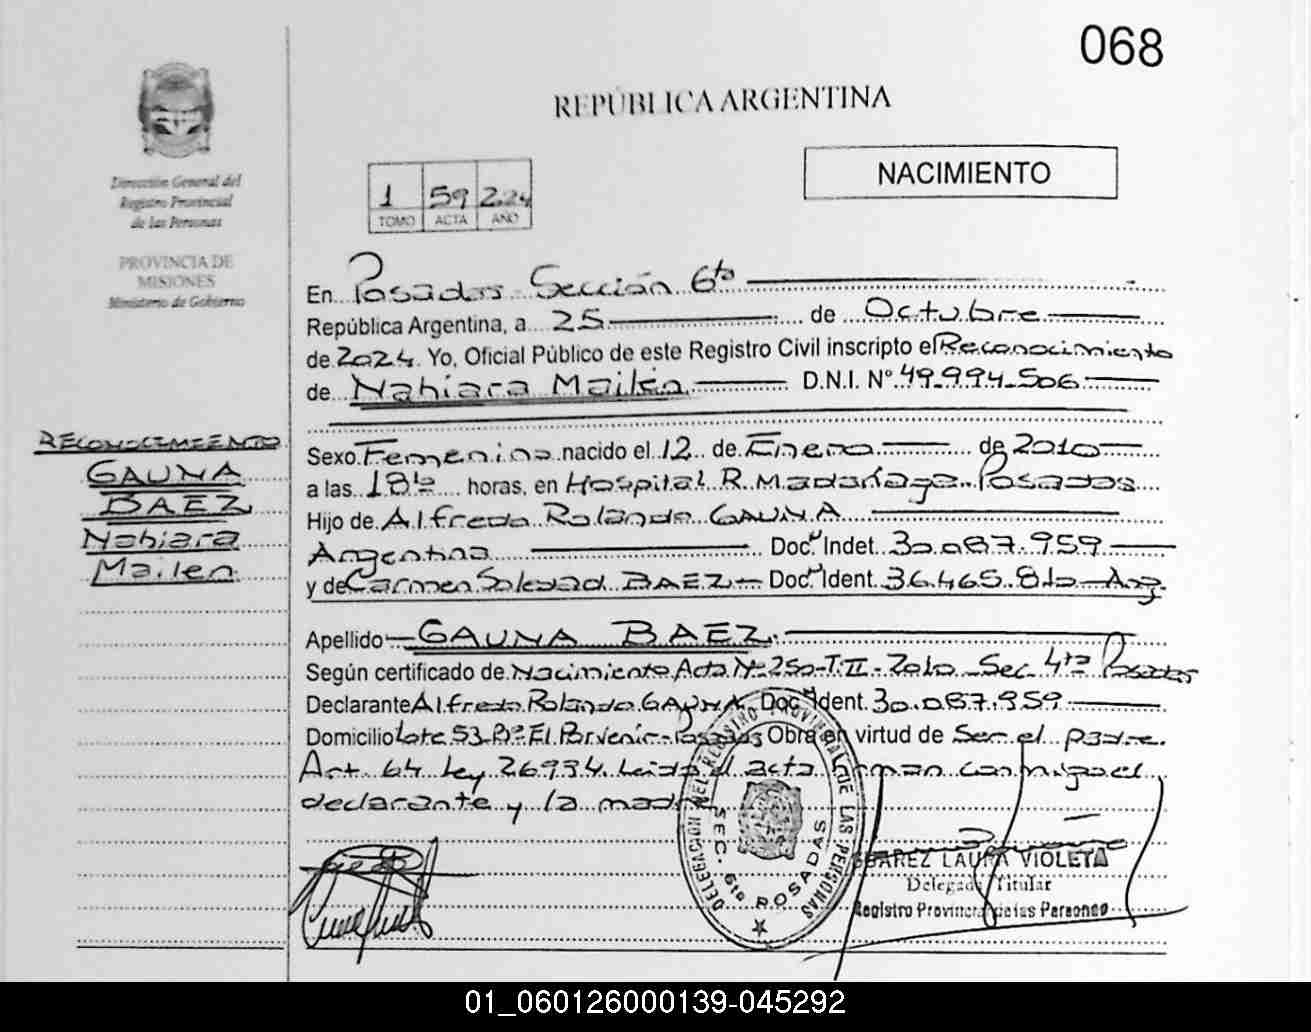 068
REPÚBLICA ARGENTINA
NACIMIENTO
Dirección General del
Registro Provincial
de las Personas
PROVINCIA DE
MISIONES
Ministerio de Gobierno
1 59 2024
TOMO ACTA AÑO
En Posadas - Sección 6ta
República Argentina, a 25 de Octubre
de 2024. Yo, Oficial Público de este Registro Civil inscripto el Reconocimiento
de Nahiara Mailén D.N.I. N° 49.994.506
RECONOCIMIENTO
GAUNA
BAEZ
Nahiara
Mailen
Sexo Femenino nacido el 12 de Enero de 2010
a las 18 horas, en Hospital R. Madariaga. Posadas
Hijo de Alfredo Rolando GAUNA
Argentina Doc. Indet. 30.087.959
y de Carmen Soledad BAEZ Doc. Ident. 36.465.810 Arg.
Apellido GAUNA BAEZ.
Según certificado de Nacimiento Acta N° 250-T.II-2010 Sec. 4ta Posadas
Declarante Alfredo Rolando GAUNA Doc. Ident. 30.087.959
Domicilio Lote 53 B° El Porvenir - Posadas Obra en virtud de Ser el padre.
Art. 64 Ley 26994. Leida el acta firman conmigo el
declarante y la madre
DELEGACION DEL REGISTRO PROVINCIAL DE LAS PERSONAS
SEC. 6ta POSADAS
LAURA VIOLETA
Delegada Titular
Registro Provincial de las Personas
01_060126000139-045292